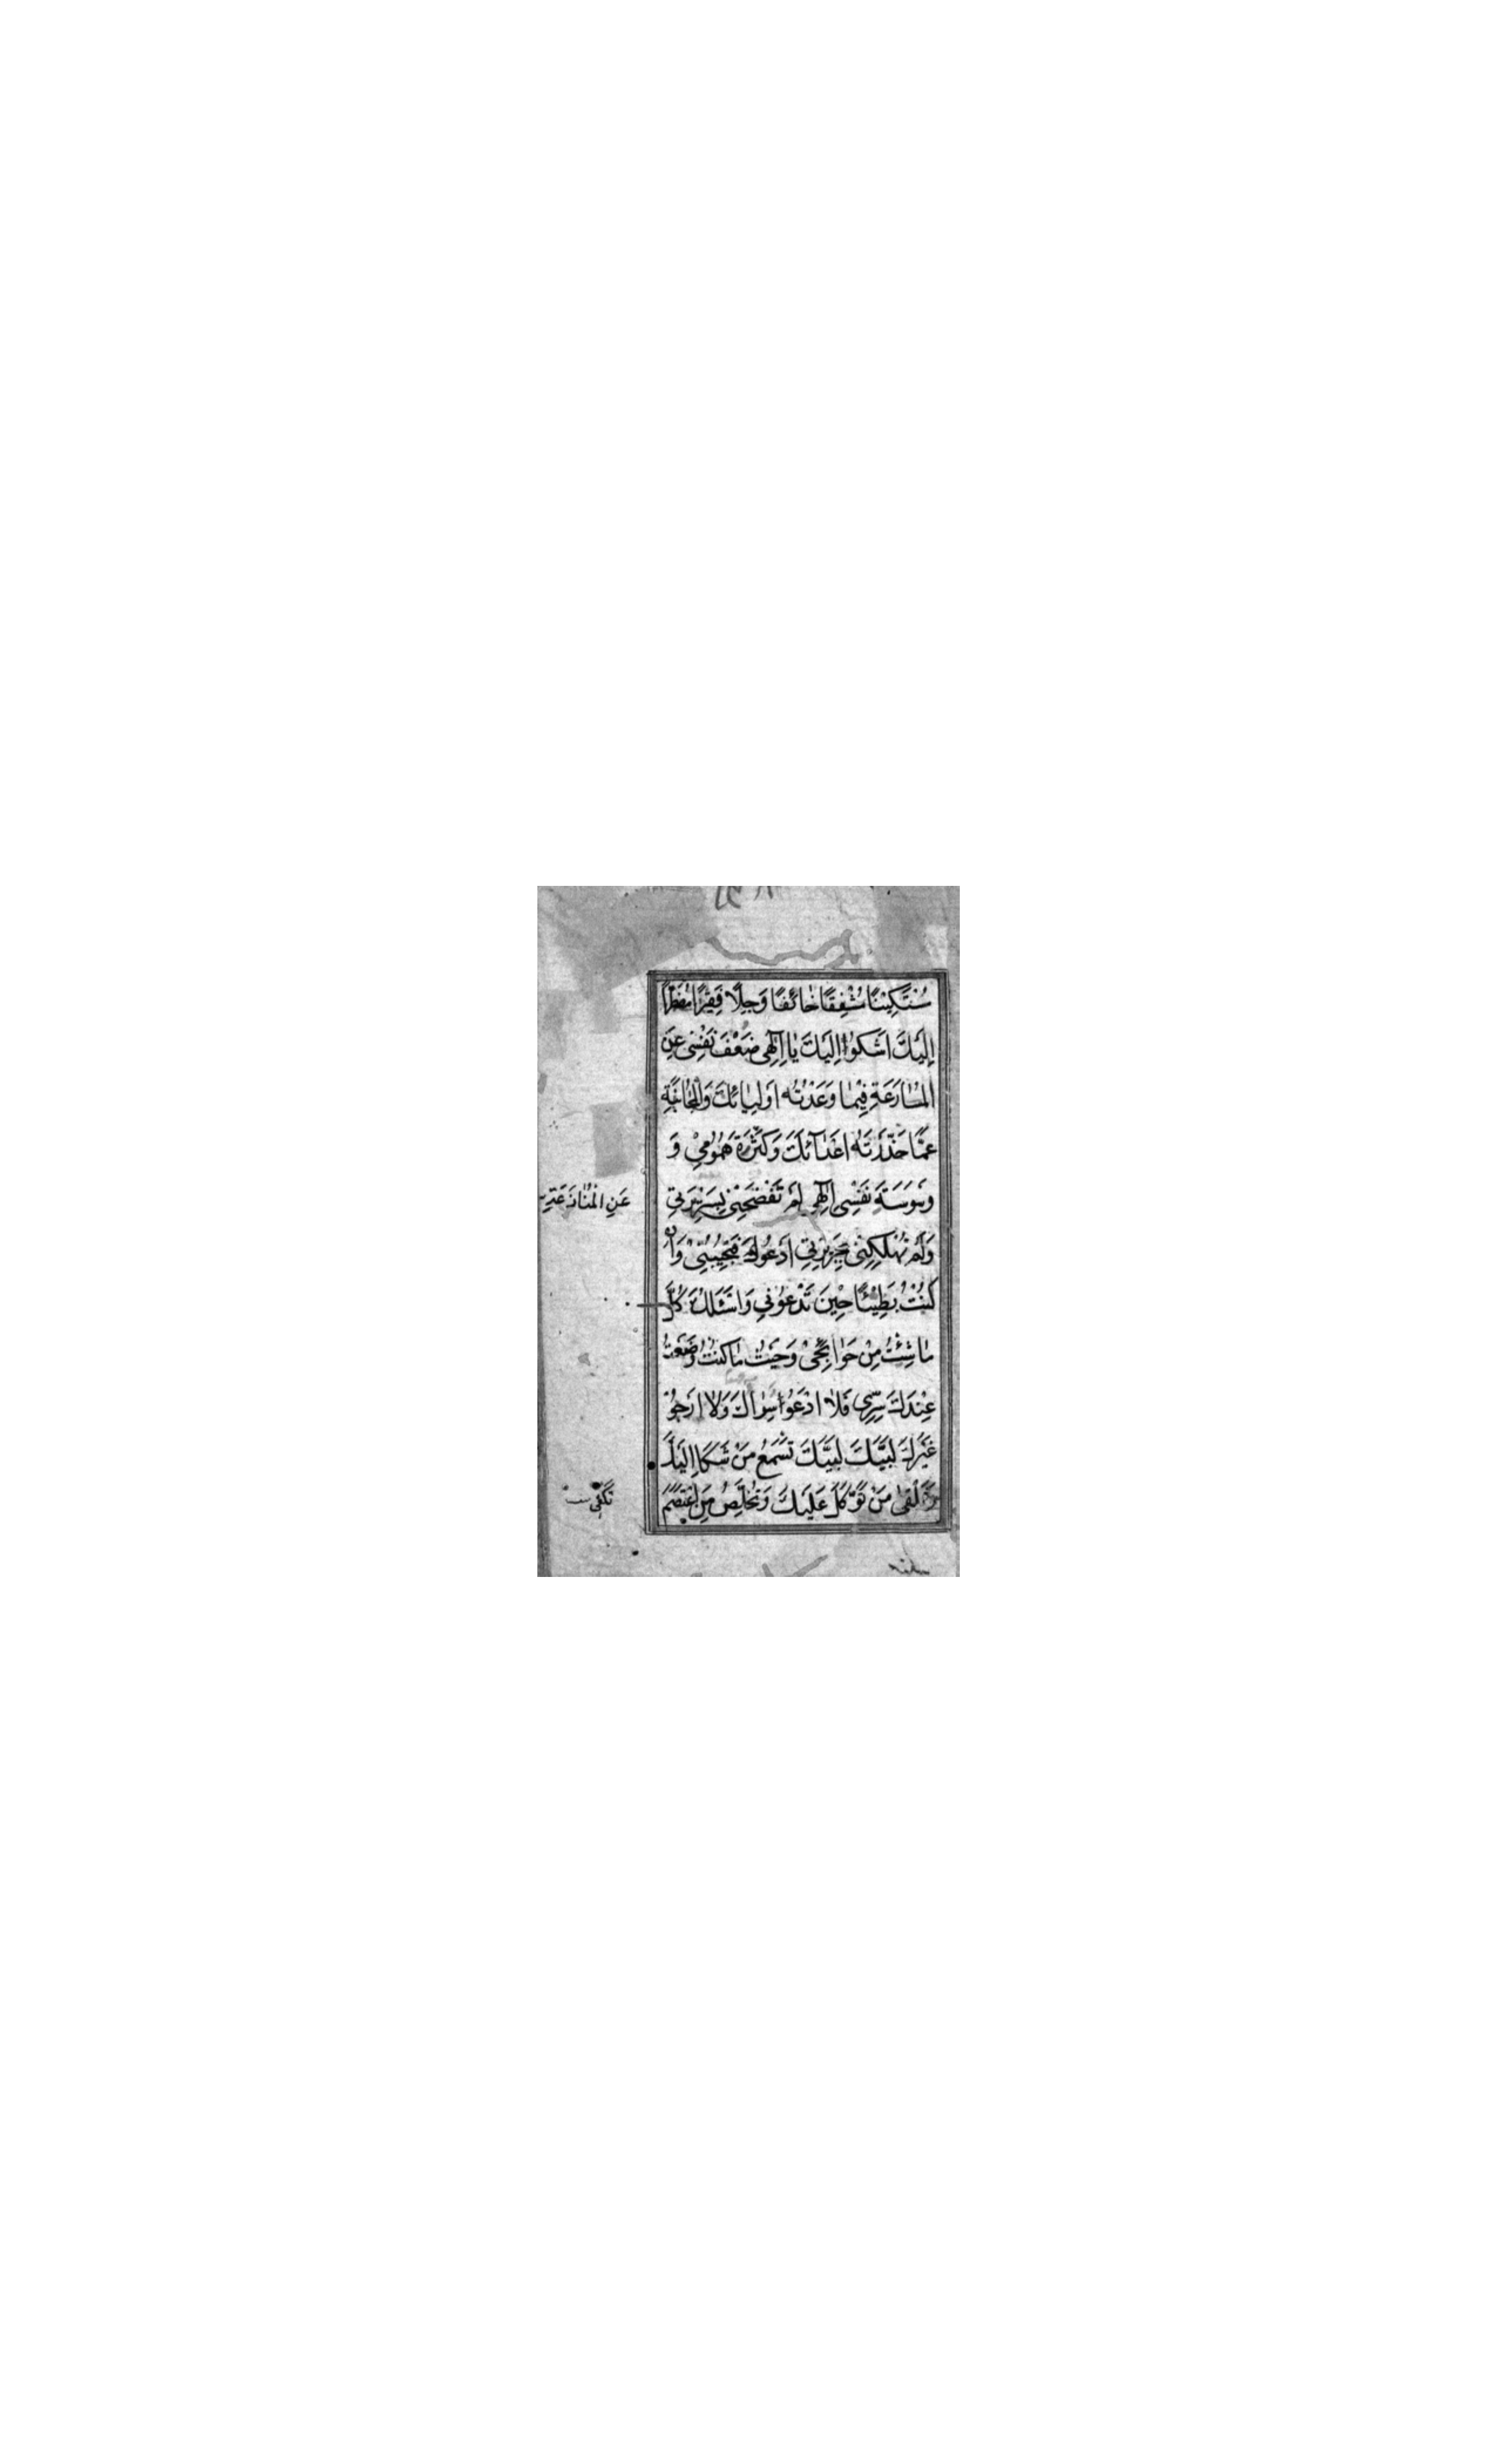 مُسْتَكِينًا مُشْفِقًا خَائِفًا وَجِلًا فَقِيرًا مُضْطَرًّا
اِلَيْكَ اَشْكُوا اِلَيْكَ يَا اِلٰهِى ضَعْفَ نَفْسِى عَنِ
الْمُسَارَعَةِ فِيْمَا وَعَدْتَهُ اَوْلِيَائَكَ وَالْمُجَانَبَةِ
عَمَّا حَذَّرْتَهُ اَعْدَآئَكَ وَكَثْرَةَ هُمُوْمِىْ وَ
وَسْوَسَةَ نَفْسِى اِلٰهِى لَمْ تَفْضَحْنِى بِسَرِيْرَتِى
وَلَمْ تُهْلِكْنِى بِجَرِيْرَتِى اَدْعُوْكَ فَتُجِيْبُنِىْ وَاِنْ
كُنْتُ بَطِيْئًا حِيْنَ تَدْعُوْنِى وَاَسْئَلُكَ كُلَّ
مَا شِئْتُ مِنْ حَوَائِجِىْ وَحَيْثُ مَا كُنْتُ وَضَعْتُ
عِنْدَكَ سِرِّى فَلَا اَدْعُوا سِوَاكَ وَلَا اَرْجُوْ
غَيْرَكَ لَبَّيْكَ لَبَّيْكَ تَسْمَعُ مَنْ شَكَا اِلَيْكَ
مَنْ تَوَكَّلَ عَلَيْكَ وَتُخَلِّصُ مَنِ اعْتَصَمَ
عَنِ الْمُنَازَعَةِ